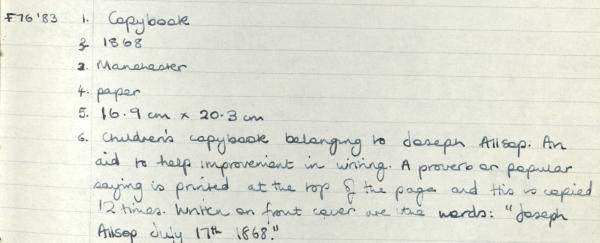 F76'83 1. Copybook
3. 1868
2. Manchester
4. paper
5. 16.9 cm x 20.3 cm
6. Children's copybook belonging to Joseph Allsop. An
aid to help improvement in writing. A proverb or popular
saying is printed at the top of the page and this is copied
12 times. Written on front cover are the words: "Joseph
Allsop July 17th 1868."